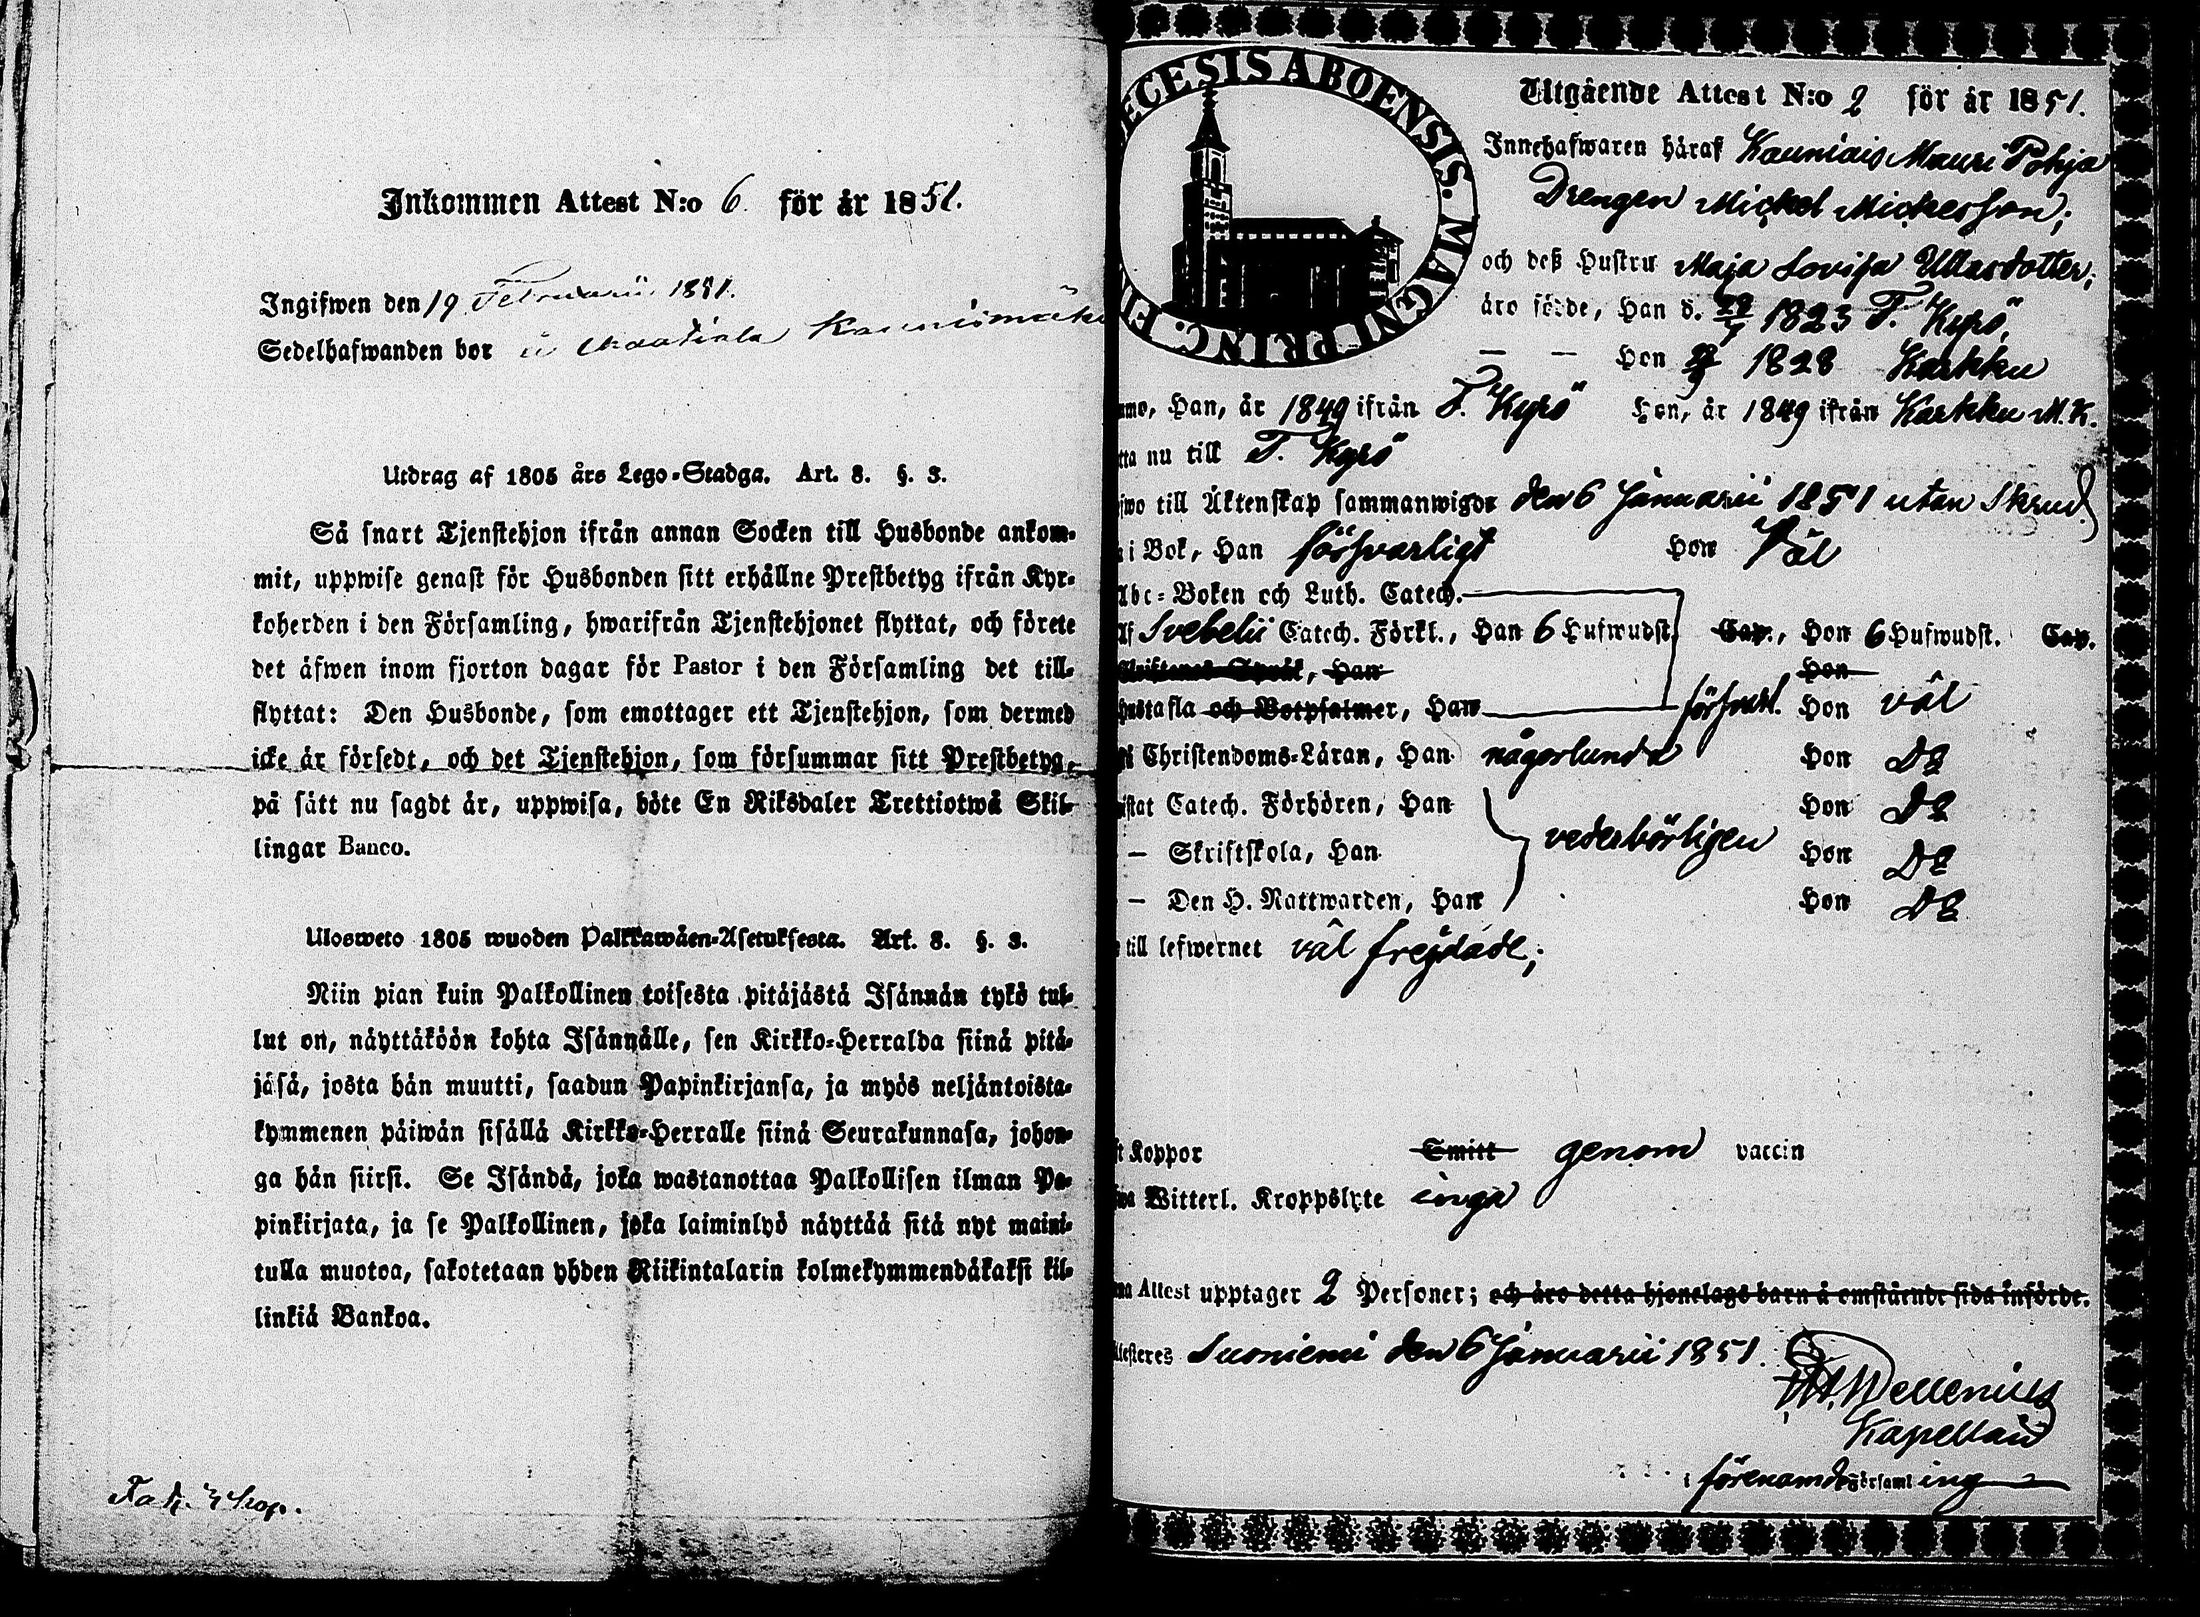 Inkommen Attest N:o 6. för år 1851.
Ingifwen den 19 Februarii 1851.
Sedelhafwanden bor
Utdrag af 1805 års Lego-Stadga. Art. 8. §. 3.
Så snart Tjenstehjon ifrån annan Socken till Husbonde ankom-
mit, uppwise genast för Husbonden sitt erhållne Prestbetyg ifrån Kyr-
koherden i den Församling, hwarifrån Tjenstehjonet flyttat, och förete
det äfwen inom fjorton dagar för Pastor i den Församling det till-
flyttat: Den Husbonde, som emottager ett Tjenstehjon, som dermed
icke är försedt, och det Tjenstehjon, som försummar sitt Prestbetyg,
på sätt nu sagdt är, uppwisa, böte En Riksdaler Trettiotwå Skil-
lingar Banco.
Ulosweto 1805 wuoden Palkkawäen-Asetuksesta. Art. 8. §. 3.
Niin pian kuin Palkollinen toisesta pitäjästä Isännän tykö tul-
lut on, näyttäköön kohta Isännälle, sen Kirkko-Herralda siinä pitä-
jäsä, josta hän muutti, saadun Papinkirjansa, ja myös neljäntoista-
kymmenen päiwän sisällä Kirkko-Herralle siinä Seurakunnasa, johon-
ga hän siirsi. Se Isändä, joka wastanottaa Palkollisen ilman Pa-
pinkirjata, ja se Palkollinen, joka laiminlyö näyttää sitä nyt maini-
tulla muotoa, sakotetaan yhden Riikintalarin kolmekymmendäkaksi kil-
linkiä Bankoa.
DIOECESIS ABOENSIS. MAGNI PRINC.
Utgående Attest N:o 2 för år 1851.
Innehafwaren häraf Kauniais Mauri Pohja
Drengen Mickel Mickelsson;
och deß Hustru Maja Lovisa Ullasdotter;
äro födde, Han d. 1823 T. Kyrö,
— — Hon 1828 Karkku
Han, år 1849 ifrån T. Kyrö Hon, år 1849 ifrån Karkku M.K.
nu till T. Kyrö
till Äktenskap sammanwigde den 6 Januarii 1851 utan Skrud.
i Bok, Han försvarligt Hon Väl
Abc-Boken och Luth. Catech.
Svebelii Catech. Förkl., Han 6 Hufwudst. Cap., Hon 6 Hufwudst. Cap.
Han Hon
Hustafla och Botpsalmer, Han försvarl. Hon väl
Christendoms-Läran, Han någorlunda Hon D:o
Catech. Förhören, Han Hon D:o
— Skriftskola, Han vederbörligen Hon D:o
— Den H. Nattwarden, Han Hon D:o
till lefwernet väl frejdade;
Koppor Smitt genom vaccin
Witterl. Kroppslyte inga
Attest upptager 2 Personer; och äro detta hjonelags barn å omstående sida införde.
Suoniemi den 6 Januarii 1851.
Wellenius
Kapellan
i förenamde Församling